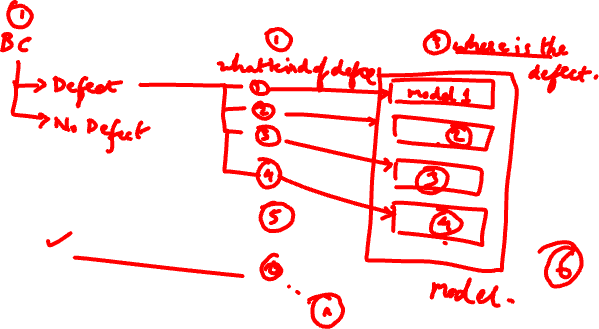 1
BC
Defect
No Defect
1
what kind of defec
1
2
3
4
5
6
3 where is the
defect.
model 1
2
3
4
model.
6